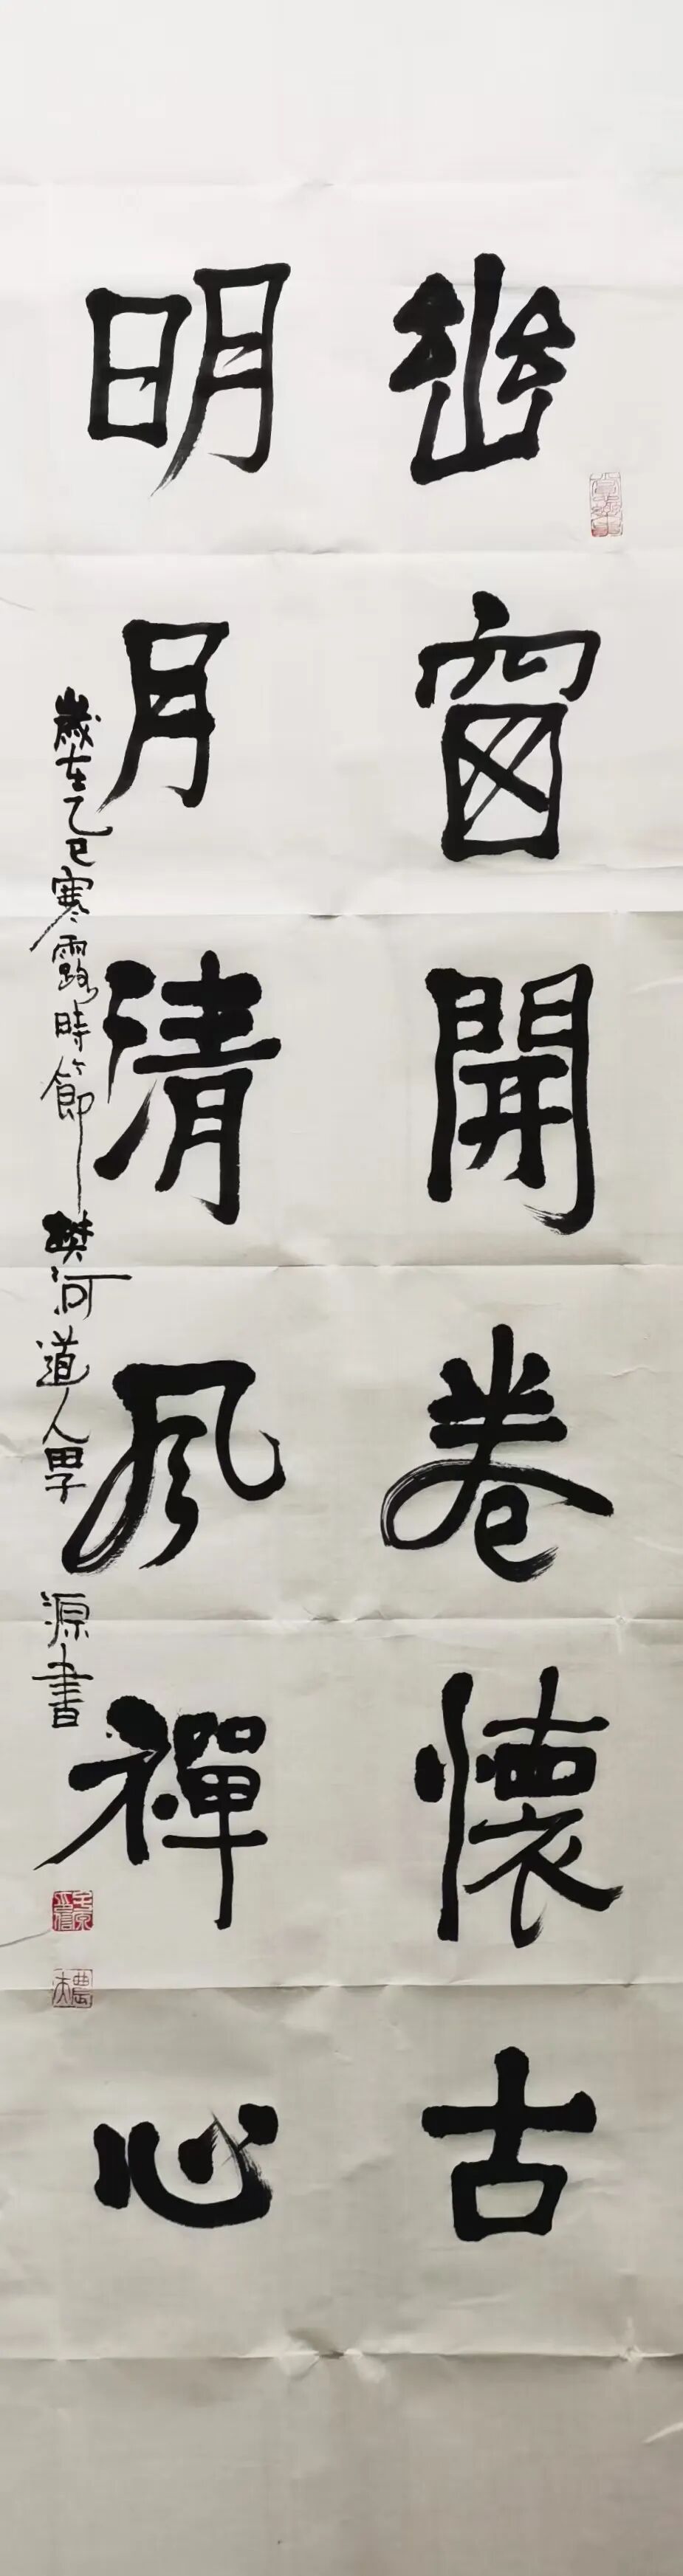 幽窗開卷懷古
明月清風禪心
歲在乙巳寒露時節樊河道人男源書